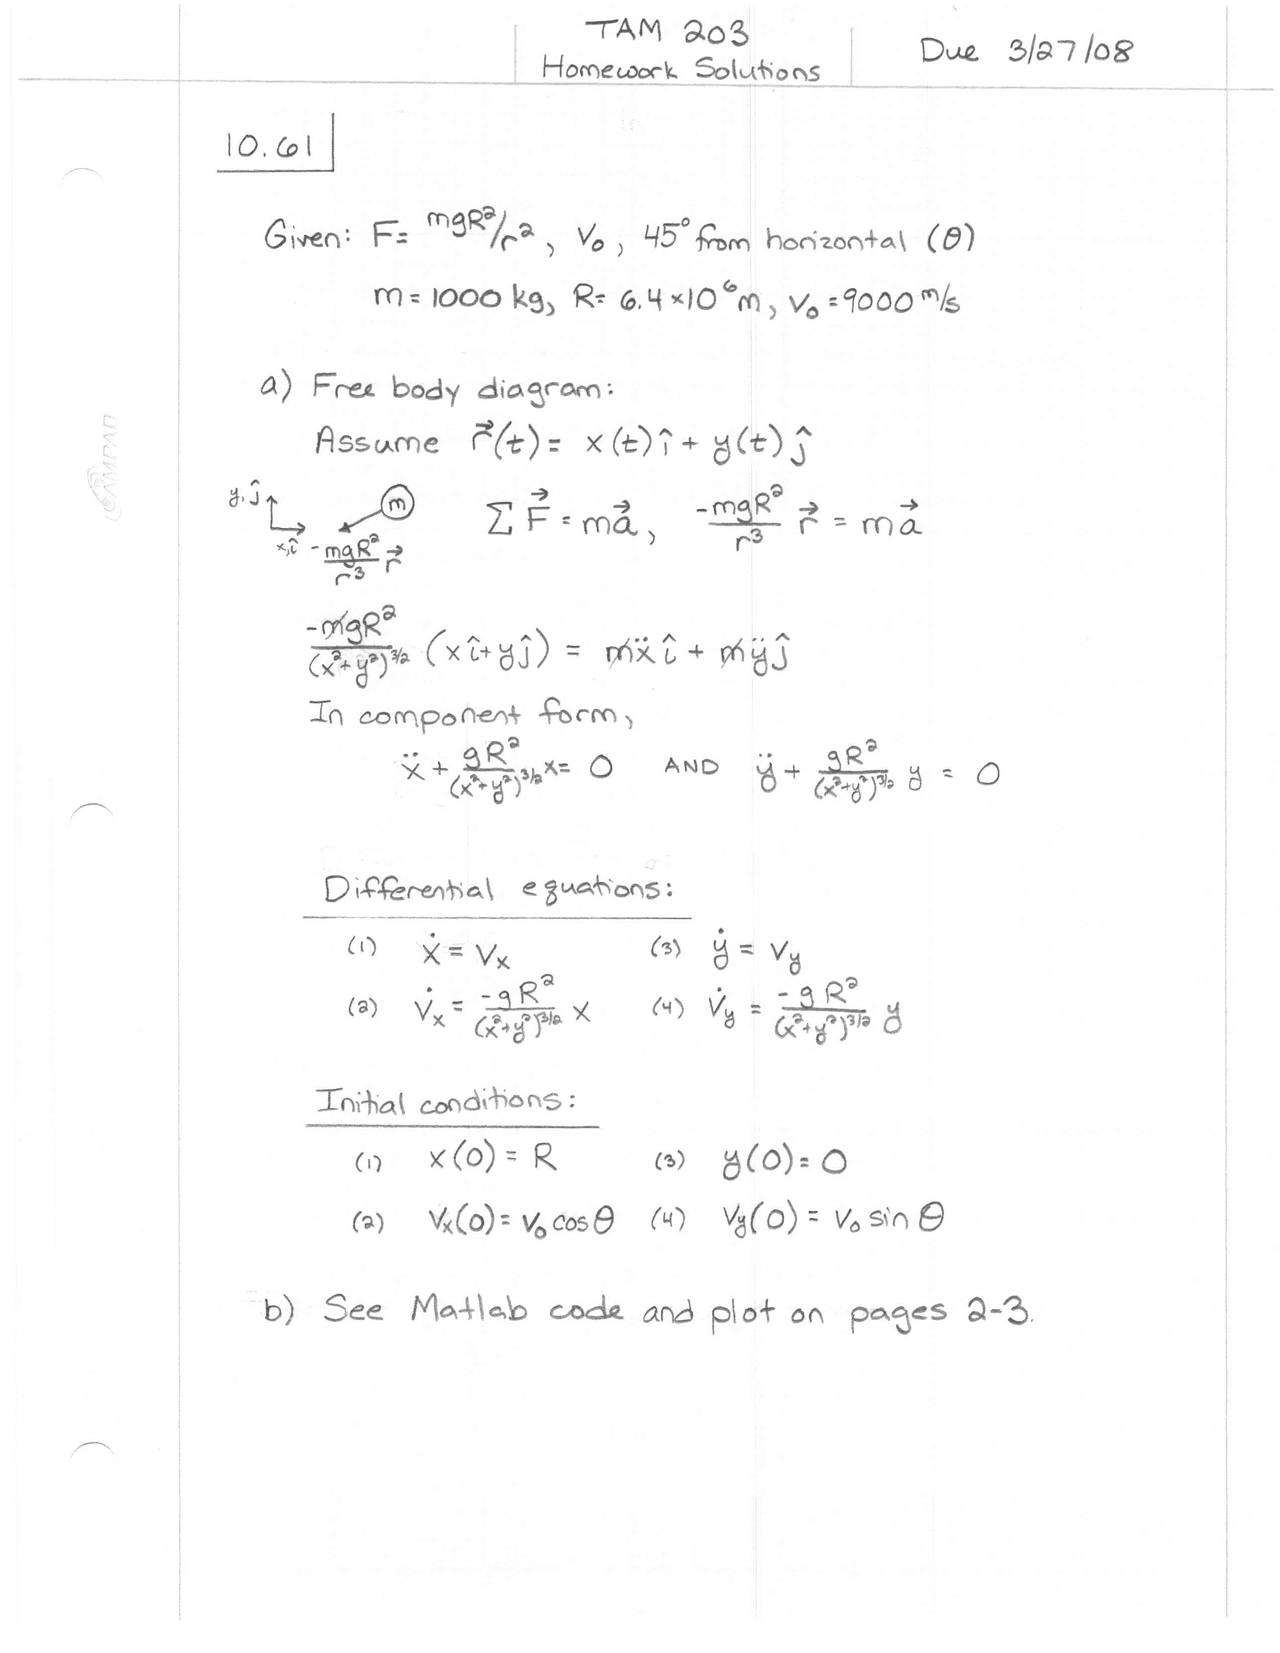 TAM 203
Homework Solutions
Due 3/27/08
10.61
Given: F= mgR²/r², V₀, 45° from horizontal (θ)
m = 1000 kg, R= 6.4×10⁶m, V₀ = 9000 m/s
a) Free body diagram:
Assume r⃗(t) = x(t)î + y(t)ĵ
y,ĵ
x,î
m
-mgR²/r³ r⃗
Σ F⃗ = ma⃗, -mgR²/r³ r⃗ = ma⃗
-mgR²/(x²+y²)^3/2 (xî+yĵ) = mẍî + mÿĵ
In component form,
ẍ + gR²/(x²+y²)^3/2 x = 0 AND ÿ + gR²/(x²+y²)^3/2 y = 0
Differential equations:
(1) ẋ = Vx (3) ẏ = Vy
(2) V̇x = -gR²/(x²+y²)^3/2 x (4) V̇y = -gR²/(x²+y²)^3/2 y
Initial conditions:
(1) x(0) = R (3) y(0) = 0
(2) Vx(0) = V₀ cosθ (4) Vy(0) = V₀ sin θ
b) See Matlab code and plot on pages 2-3.
AMPAD